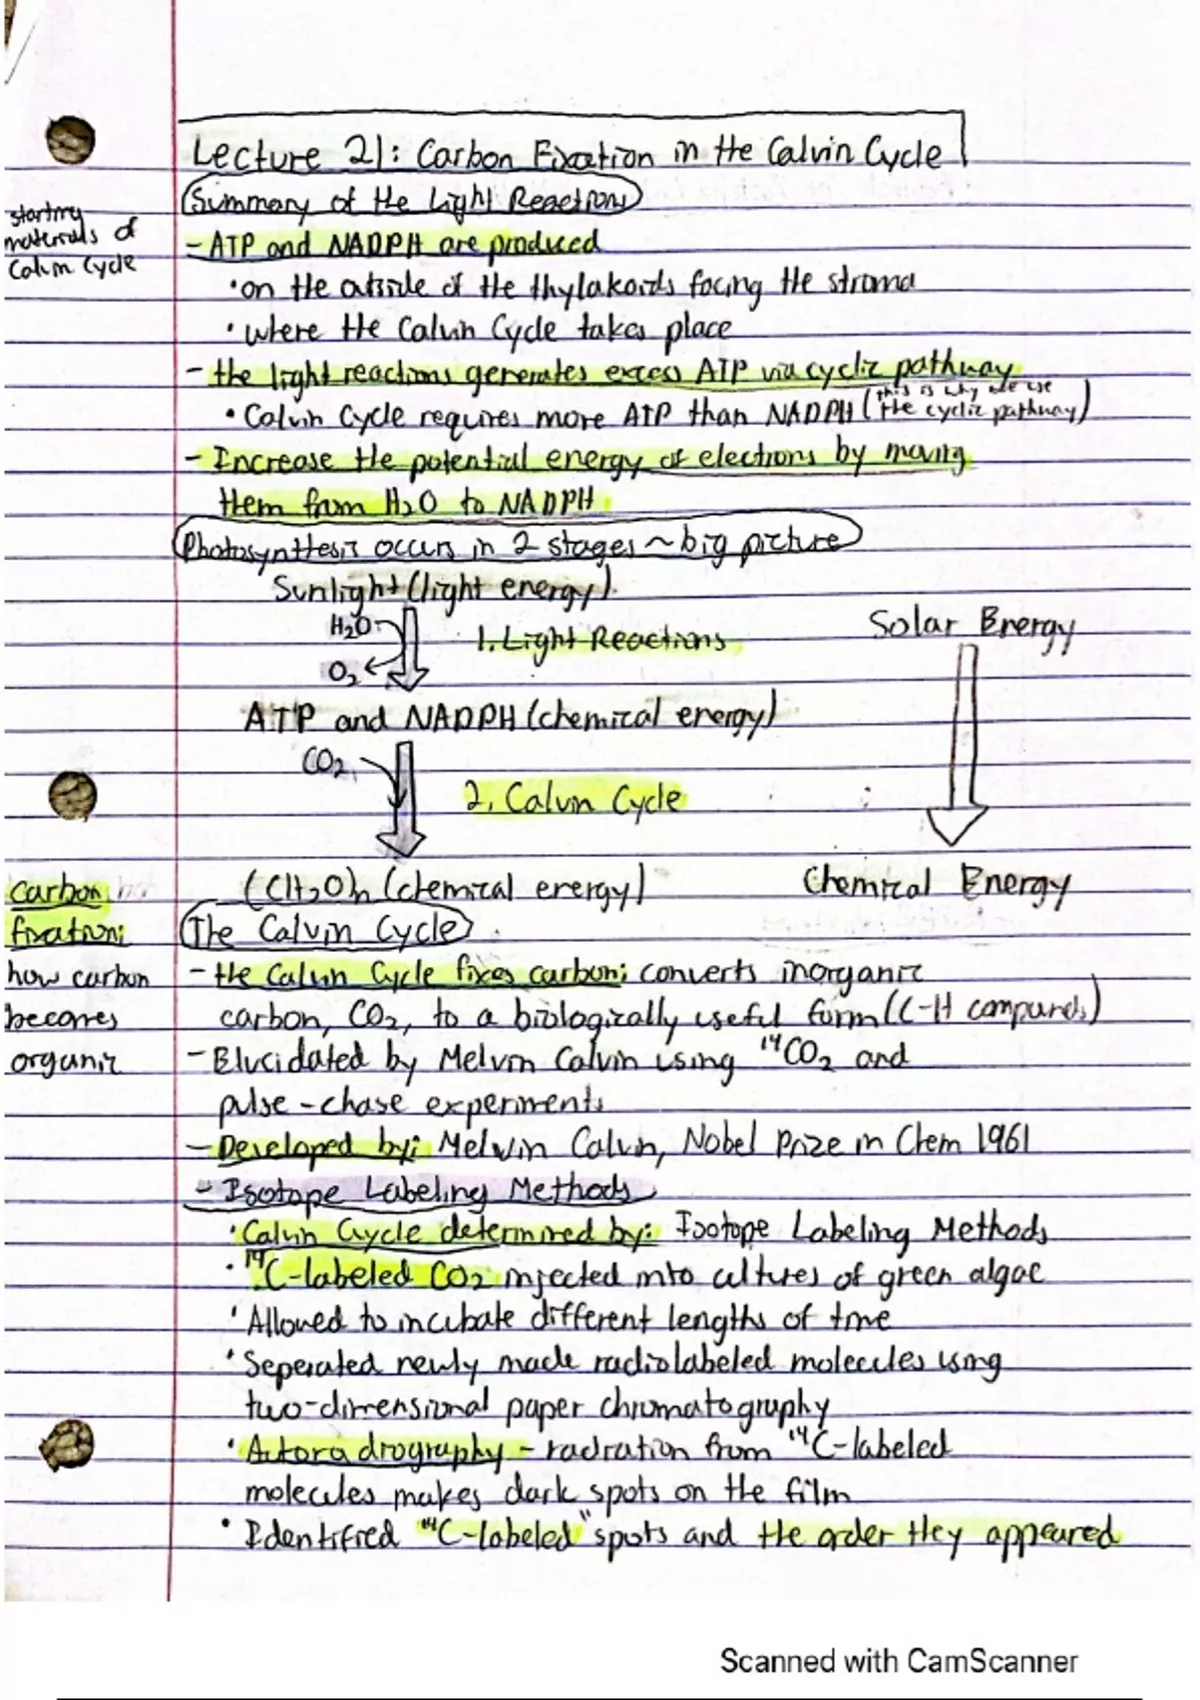 Lecture 21: Carbon Fixation in the Calvin Cycle
Summary of the Light Reactions
starting
materials of
Calvin Cycle
- ATP and NADPH are produced
• on the outside of the thylakoids facing the stroma
• where the Calvin Cycle takes place
- the light reactions generates excess ATP via cyclic pathway
• Calvin Cycle requires more ATP than NADPH (this is why we use
the cyclic pathway)
- Increase the potential energy of electrons by moving
them from H₂O to NADPH
Photosynthesis occurs in 2 stages ~ big picture
Sunlight (light energy)
H₂O
1. Light Reactions
Solar Energy
O₂
ATP and NADPH (chemical energy)
CO₂
2. Calvin Cycle
(CH₂O)n (chemical energy)
Chemical Energy
carbon
fixation:
how carbon
becomes
organic
The Calvin Cycle
- the Calvin Cycle fixes carbon: converts inorganic
carbon, CO₂, to a biologically useful form (C-H compounds)
- Elucidated by Melvin Calvin using ¹⁴CO₂ and
pulse-chase experiments
- Developed by: Melvin Calvin, Nobel Prize in Chem 1961
- Isotope Labeling Methods
• Calvin Cycle determined by: Isotope Labeling Methods
• ¹⁴C-labeled CO₂ injected into cultures of green algae
• Allowed to incubate different lengths of time
• Seperated newly made radiolabeled molecules using
two-dimensional paper chromatography
• Autoradiography - radiation from ¹⁴C-labeled
molecules makes dark spots on the film
• Identified "¹⁴C-labeled" spots and the order they appeared
Scanned with CamScanner